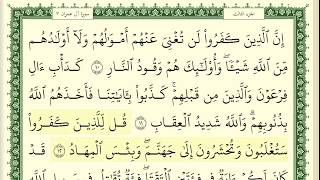 الجزء الثالث سورة آل عمران ٣
إِنَّ ٱلَّذِينَ كَفَرُواْ لَن تُغۡنِيَ عَنۡهُمۡ أَمۡوَٰلُهُمۡ وَلَآ أَوۡلَٰدُهُم
مِّنَ ٱللَّهِ شَيۡـٔٗاۖ وَأُوْلَٰٓئِكَ هُمۡ وَقُودُ ٱلنَّارِ ١٠ كَدَأۡبِ ءَالِ
فِرۡعَوۡنَ وَٱلَّذِينَ مِن قَبۡلِهِمۡۚ كَذَّبُواْ بِـَٔايَٰتِنَا فَأَخَذَهُمُ ٱللَّهُ
بِذُنُوبِهِمۡۗ وَٱللَّهُ شَدِيدُ ٱلۡعِقَابِ ١١ قُل لِّلَّذِينَ كَفَرُواْ
سَتُغۡلَبُونَ وَتُحۡشَرُونَ إِلَىٰ جَهَنَّمَۖ وَبِئۡسَ ٱلۡمِهَادُ ١٢ قَدۡ
كَانَ لَكُمۡ ءَايَةٞ فِي فِئَتَيۡنِ ٱلۡتَقَتَاۖ فِئَةٞ تُقَٰتِلُ فِي سَبِيلِ ٱللَّهِ